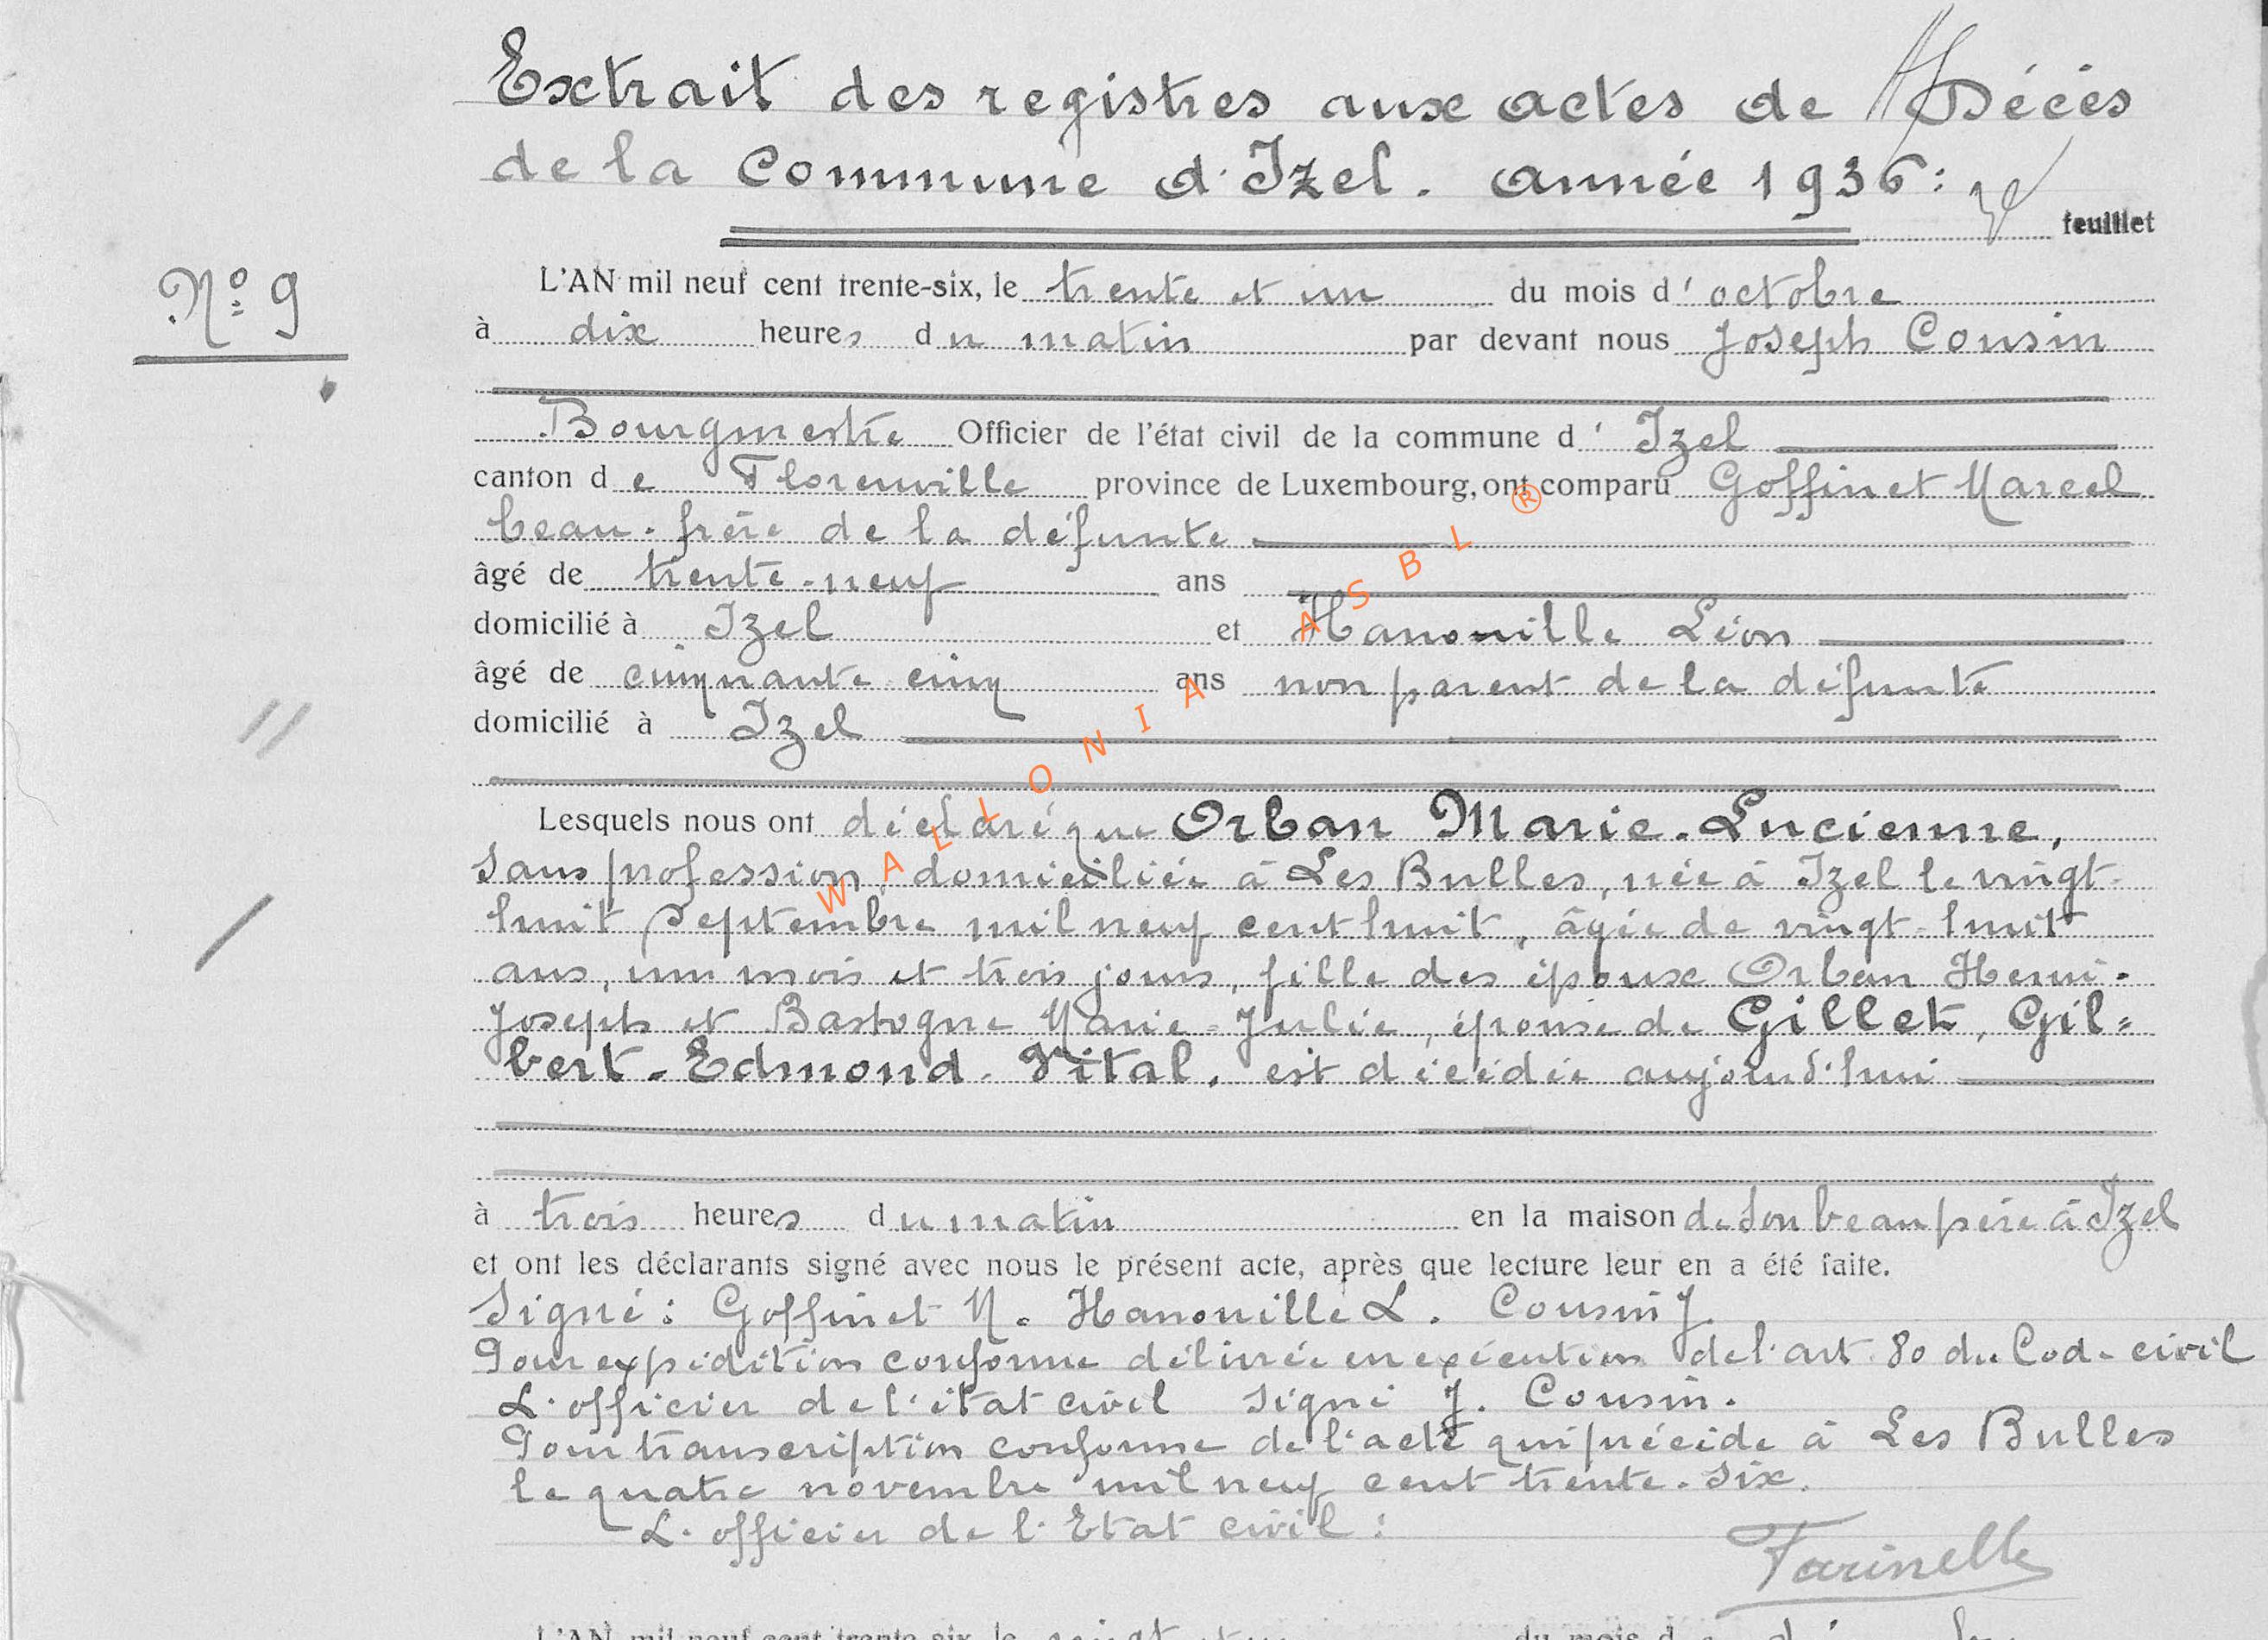 Extrait des registres aux actes de Décès
de la Commune d'Izel. année 1936:
feuillet
Nº 9
L'AN mil neuf cent trente-six, le trente et un du mois d'octobre
à dix heures du matin par devant nous Joseph Cousin
Bourgmestre Officier de l'état civil de la commune d'Izel
canton de Florenville province de Luxembourg, ont comparu Goffinet Marcel
beau-frère de la défunte
âgé de trente-neuf ans
domicilié à Izel et Hanouille Léon
âgé de cinquante cinq ans non parent de la défunte
domicilié à Izel
Lesquels nous ont déclaré que Orban Marie-Lucienne,
sans profession, domiciliée à Les Bulles, née à Izel le vingt-
huit septembre mil neuf cent huit, âgée de vingt-huit
ans, un mois et trois jours, fille des époux Orban Henri-
Joseph et Bastogne Marie-Julie, épouse de Gillet, Gil=
bert-Edmond-Vital, est décédée aujourd'hui
à trois heures du matin en la maison de son beau père à Izel
et ont les déclarants signé avec nous le présent acte, après que lecture leur en a été faite.
Signé: Goffinet M. Hanouille L. Cousin J.
Pour expédition conforme délivrée en exécution de l'art. 80 du Code civil
L'officier de l'état civil signé J. Cousin.
Pour transcription conforme de l'acte qui précède à Les Bulles
le quatre novembre mil neuf cent trente-six.
L'officier de l'Etat civil:
Farinelle
L'AN mil neuf cent trente-six, le vingt du mois d
WALLONIA ASBL ®